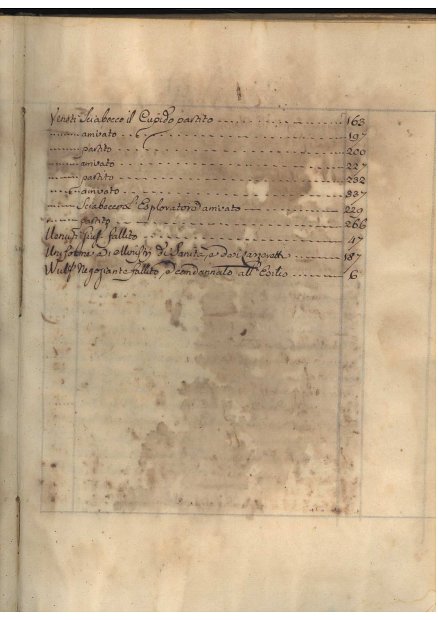 Veneti Sciabecco il Cupido partito 163
arrivato 197
partito 200
arrivato 227
partito 232
arrivato 337
Sciabecco Esploratore arrivato 229
partito 266
fallito 47
Uniforme di Sanità, e de 187
Negoziante fallito, e condannato all' Esilio 6